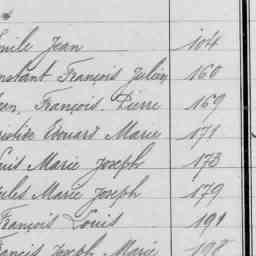 Emile Jean 104
Constant François Julien 160
Jean François Pierre 169
Edouard Marie 171
Louis Marie Joseph 173
Jules Marie Joseph 179
François Louis 191
Francis Joseph Marie 198